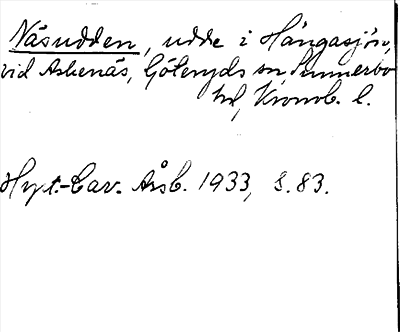 Näsudden, udde i Hångasjön,
vid Askenäs, Göteryds sn, Sunnerbo
hd, Kronob. l.
Hylt.-Cav. Årsb. 1933, s. 83.